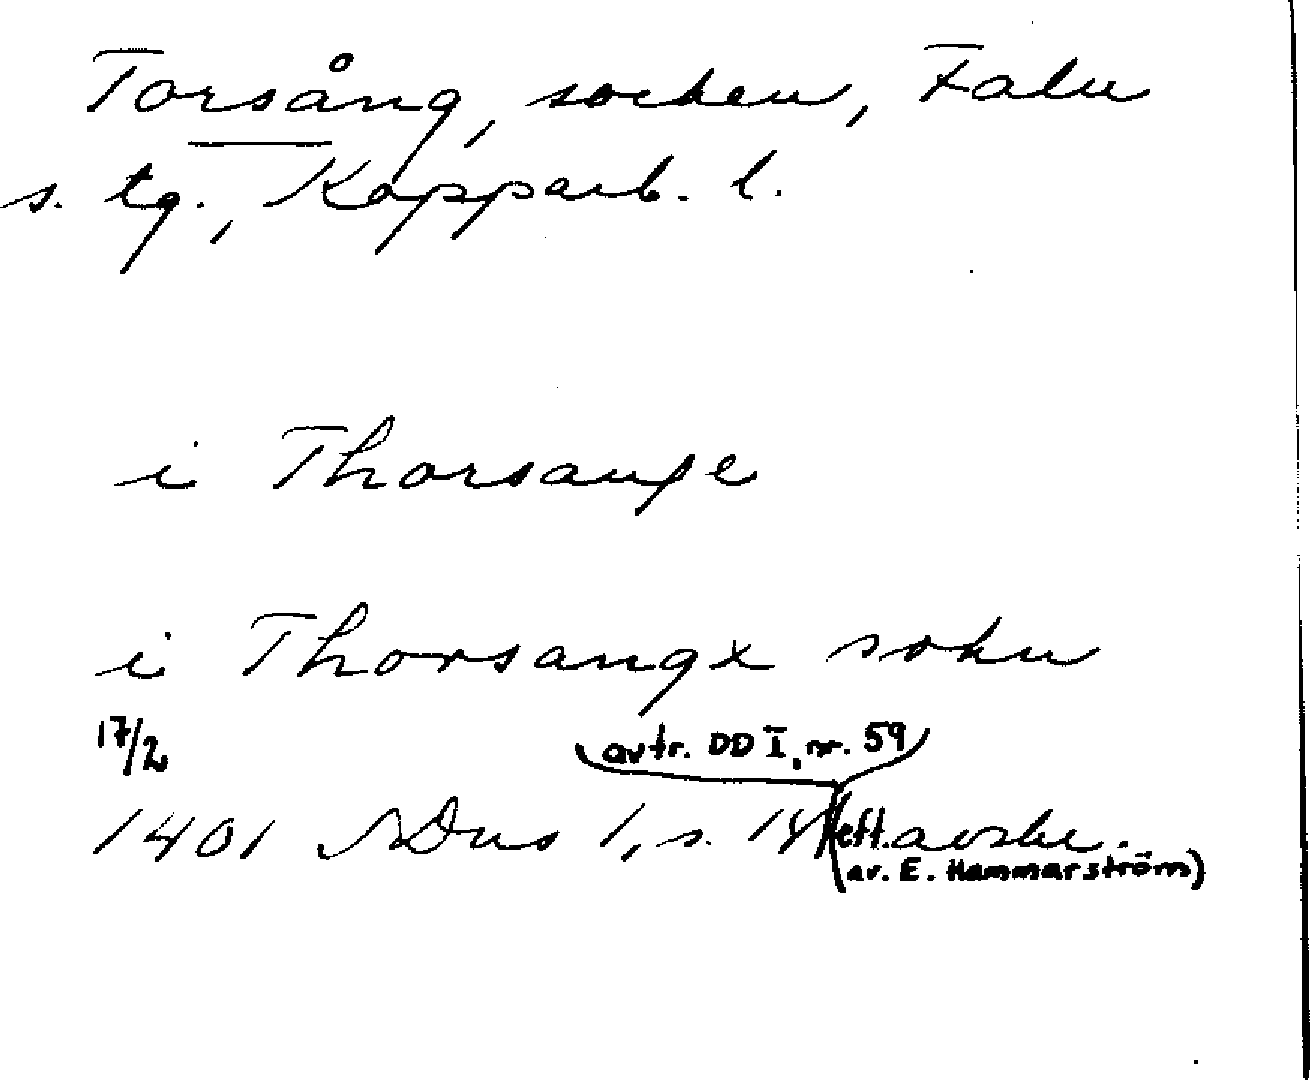 Torsång, socken, Falu
s. tg., Kopparb. l.
i Thorsange
i Thorsangx sokn
17/2
avtr. DD I, nr. 59
1401 NDns 1, s. 18 (eft. avskr.
av. E. Hammarström)